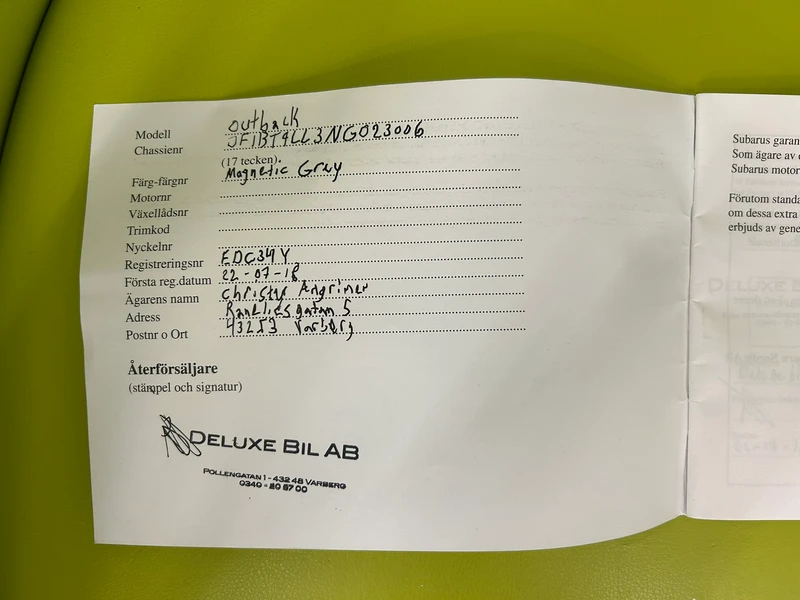 Modell outback
Chassienr JF1BT9LL3NG023006
(17 tecken).
Färg-färgnr Magnetic Gray
Motornr
Växellådsnr
Trimkod
Nyckelnr
Registreringsnr EDC34Y
Första reg.datum 22-07-18
Ägarens namn Christy
Adress 5
Postnr o Ort 43253 Varberg
Återförsäljare
(stämpel och signatur)
DELUXE BIL AB
POLLENGATAN 1 - 432 48 VARBERG
0340 - 20 67 00
Subarus garan
Som ägare av
Subarus motor
Förutom standa
om dessa extra
erbjuds av gene